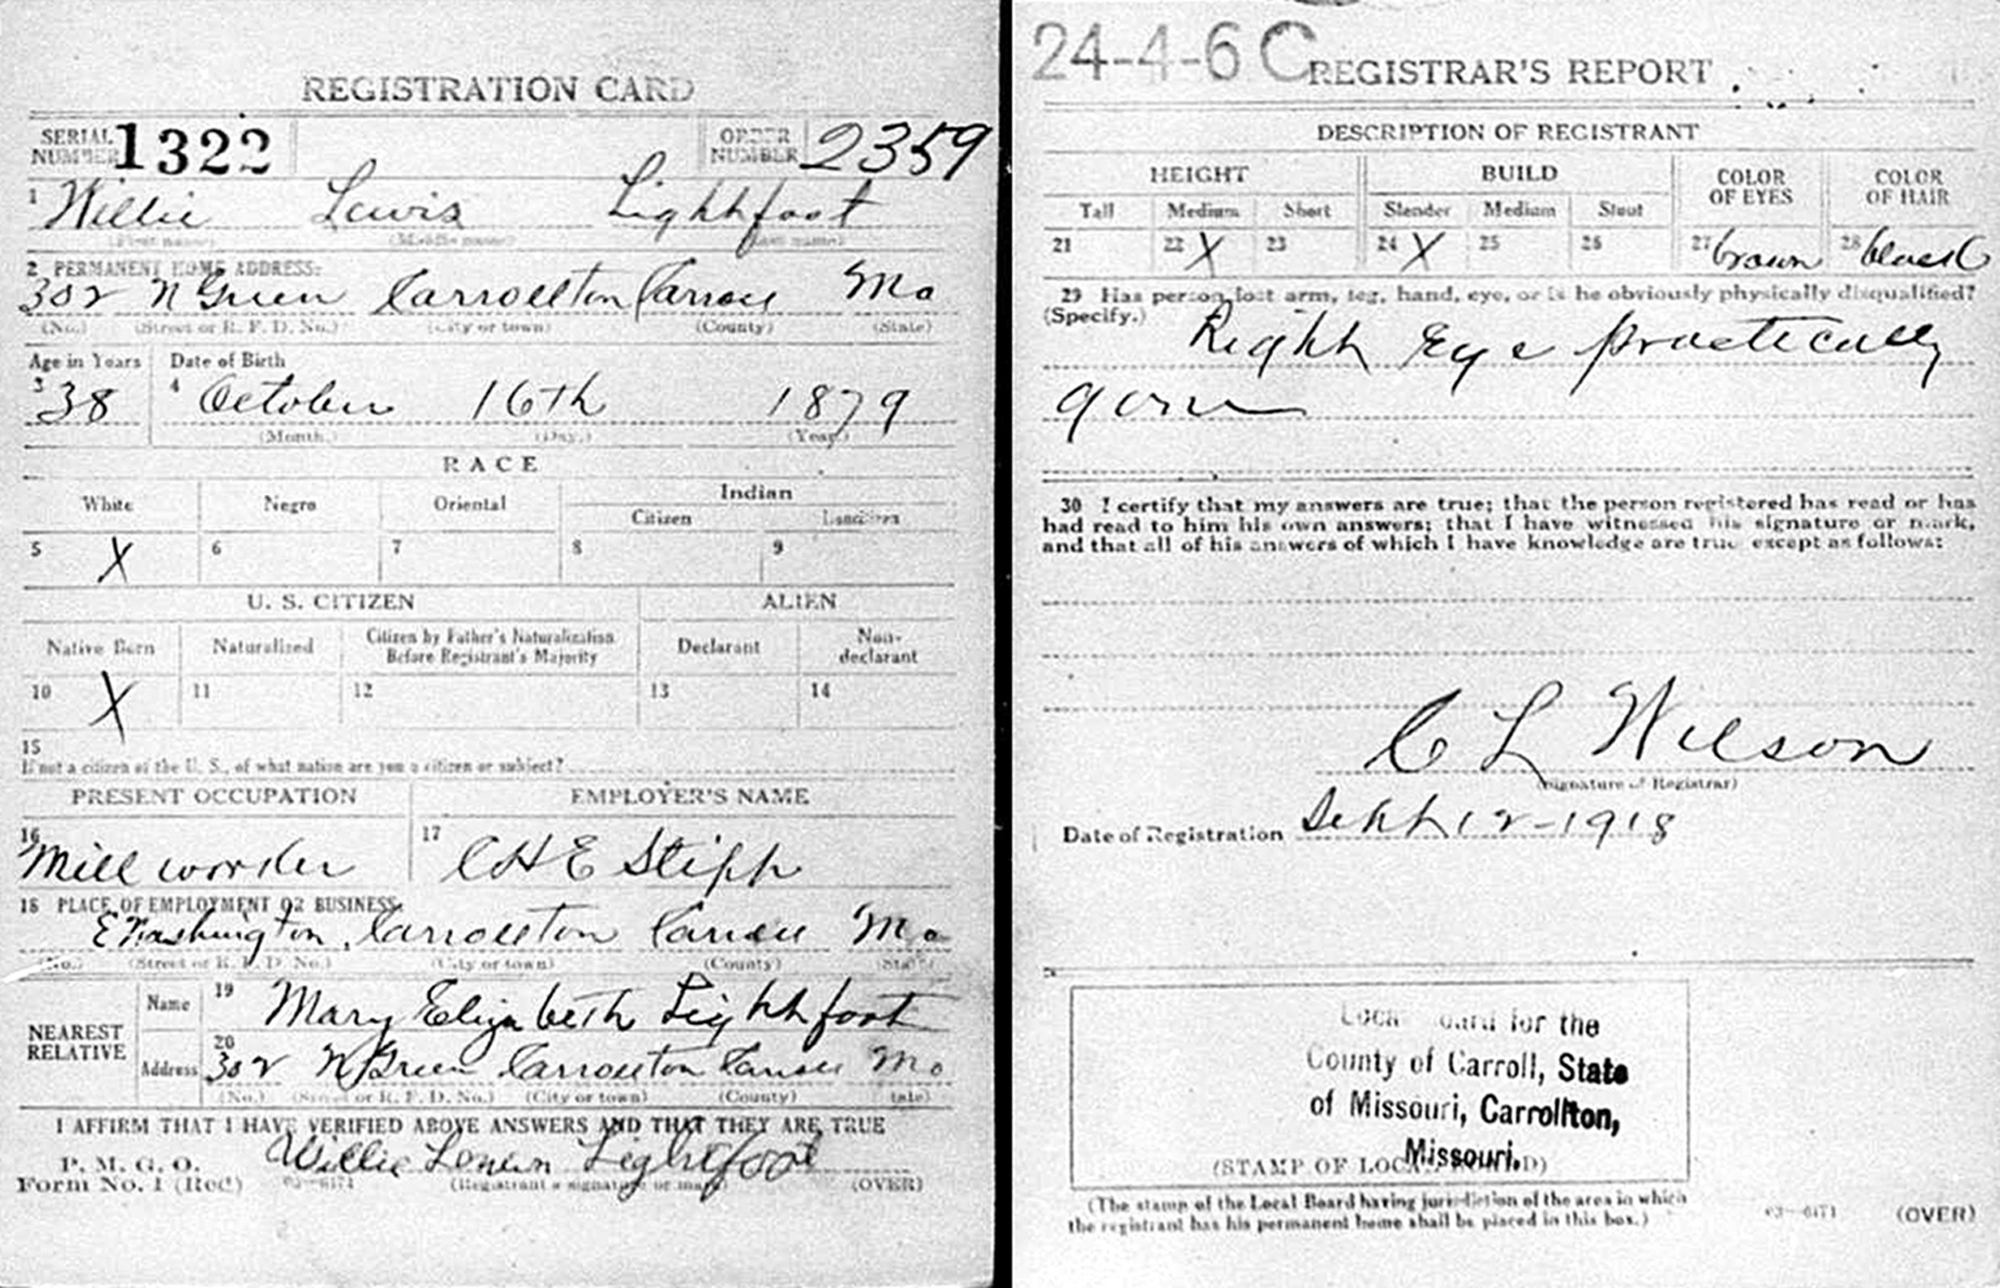 REGISTRATION CARD
SERIAL NUMBER 1322 ORDER NUMBER 2359
1 Willie Lewis Lightfoot
(First name) (Middle name) (Last name)
2 PERMANENT HOME ADDRESS:
302 N Green Carrollton Carroll Mo
(No.) (Street or R. F. D. No.) (City or town) (County) (State)
Age in Years Date of Birth
3 38 4 October 16th 1879
(Month.) (Day.) (Year.)
RACE
White Negro Oriental Indian
Citizen
5 X 6 7 8 9
U. S. CITIZEN ALIEN
Native Born Naturalized Citizen by Father's Naturalization Before Registrant's Majority Declarant Non-declarant
10 X 11 12 13 14
15
If not a citizen of the U. S., of what nation are you a citizen or subject?
PRESENT OCCUPATION EMPLOYER'S NAME
16 Mill worker 17 C H E Stipp
18 PLACE OF EMPLOYMENT OR BUSINESS:
E Washington, Carrollton Carroll Mo
(No.) (Street or R. F. D. No.) (City or town) (County) (State)
NEAREST RELATIVE
Name 19 Mary Elizabeth Lightfoot
Address 20 302 N Green Carrollton Carroll Mo
(No.) (Street or R. F. D. No.) (City or town) (County) (State)
I AFFIRM THAT I HAVE VERIFIED ABOVE ANSWERS AND THAT THEY ARE TRUE
P. M. G. O.
Form No. 1 (Red) Willie Lightfoot
03—6171 (Registrant's signature or mark) (OVER)
24-4-6 C REGISTRAR'S REPORT
DESCRIPTION OF REGISTRANT
HEIGHT BUILD COLOR OF EYES COLOR OF HAIR
Tall Medium Short Slender Medium Stout
21 22 X 23 24 X 25 26 27 brown 28 black
29 Has person lost arm, leg, hand, eye, or is he obviously physically disqualified?
(Specify.) Right Eye practically
gone
30 I certify that my answers are true; that the person registered has read or has
had read to him his own answers; that I have witnessed his signature or mark,
and that all of his answers of which I have knowledge are true except as follows:
C L Wilson
(Signature of Registrar)
Date of Registration Sept 12-1918
Local Board for the
County of Carroll, State
of Missouri, Carrollton,
Missouri.
(STAMP OF LOCAL BOARD)
(The stamp of the Local Board having jurisdiction of the area in which
the registrant has his permanent home shall be placed in this box.)
03—6171 (OVER)